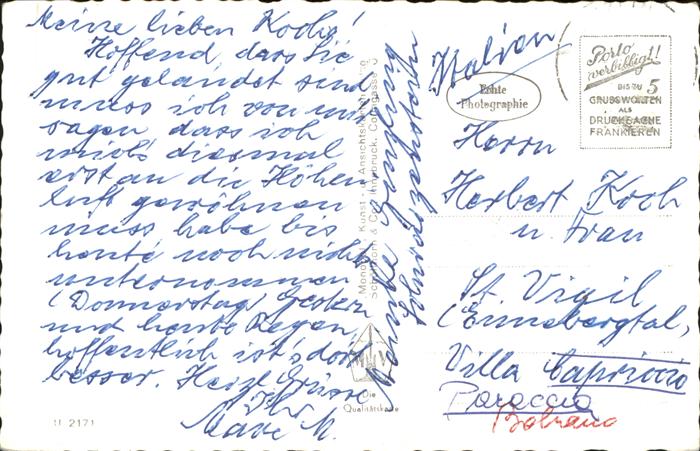 Meine lieben Kochs!
Hoffend, dass Sie
gut gelandet sind
muss ich von uns
sagen, dass ich
mich diesmal
erst an die Höhen
luft gewöhnen
muss habe bis
heute noch nichts
unternommen
(Donnerstag) Gestern
und heute Regen,
hoffentlich ist's dort
besser. Herzl. Grüsse
Ihr
Monopol Kunst- u. Ansichtskarten
Innsbruck,
Die
Qualitätskarte
U 2171
Italien
Echte
Photographie
Porto
verbilligt!
BIS ZU 5
GRUSSWORTEN
ALS
DRUCKSACHE
FRANKIEREN
Herrn
Herbert Koch
u. Frau
St. Vigil
(Ennebergtal,
Villa Capriccio
Paraccia
Bolzano